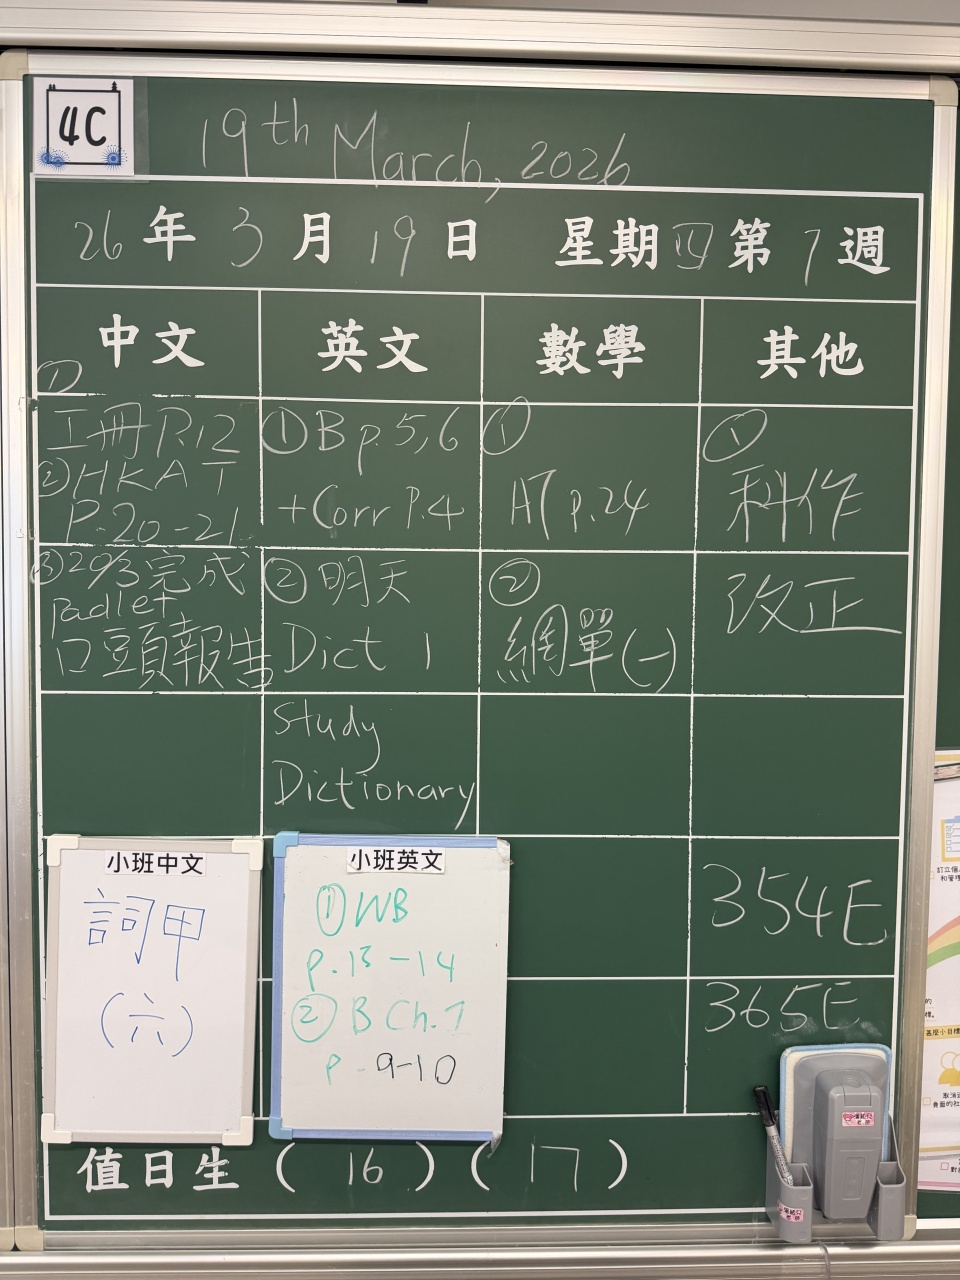 4C
19th March, 2026
26年3月19日 星期四第7週
中文 英文 數學 其他
①
工冊P.12
②HKAT
P.20-21
③293完成
padlet
口頭報告
①B p.5,6
+Corr P.4
②明天
Dict 1
Study
Dictionary
①
AT p.24
②
網單(一)
①
科作
改正
354E
365E
小班中文
詞甲
(六)
小班英文
①WB
p.13-14
②B Ch.7
p. 9-10
值日生(16)(17)